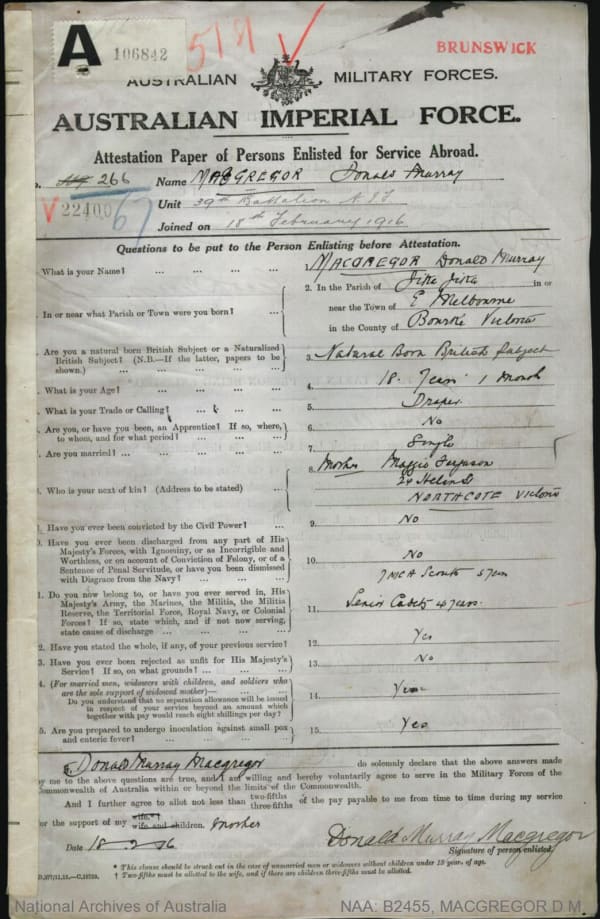 A
106842
5181
BRUNSWICK
AUSTRALIAN MILITARY FORCES.
AUSTRALIAN IMPERIAL FORCE.
Attestation Paper of Persons Enlisted for Service Abroad.
266 Name MACGREGOR Donald Murray
22400 67 Unit 39th Battalion A.I.F
Joined on 18th February 1916
Questions to be put to the Person Enlisting before Attestation.
What is your Name? ... ... ... ... 1. MACGREGOR Donald Murray
In or near what Parish or Town were you born? ... 2. In the Parish of Jika Jika in or
near the Town of E Melbourne
in the County of Bourke Victoria
Are you a natural born British Subject or a Naturalized
British Subject? (N.B.—If the latter, papers to be
shown.) ... ... ... ... 3. Natural Born British Subject
What is your Age? ... ... ... ... 4. 18 Years 1 Month
What is your Trade or Calling? ... ... ... 5. Draper
Are you, or have you been, an Apprentice? If so, where,
to whom, and for what period? ... ... ... 6. No
Are you married? ... ... ... ... 7. Single
8. Mother Maggie Ferguson
Who is your next of kin? (Address to be stated) ... 24 Helen St
NORTHCOTE Victoria
Have you ever been convicted by the Civil Power? ... 9. No
Have you ever been discharged from any part of His
Majesty's Forces, with Ignominy, or as Incorrigible and
Worthless, or on account of Conviction of Felony, or of a
Sentence of Penal Servitude, or have you been dismissed
with Disgrace from the Navy? ... ... ... 10. No
YMCA Scouts
1. Do you now belong to, or have you ever served in, His
Majesty's Army, the Marines, the Militia, the Militia
Reserve, the Territorial Force, Royal Navy, or Colonial
Forces? If so, state which, and if not now serving,
state cause of discharge ... ... ... 11. Senior Cadets 4 years.
2. Have you stated the whole, if any, of your previous service? 12. Yes
3. Have you ever been rejected as unfit for His Majesty's
Service? If so, on what grounds? ... ... ... 13. No
4. (For married men, widowers with children, and soldiers who
are the sole support of widowed mother)—
Do you understand that no separation allowance will be issued
in respect of your service beyond an amount which
together with pay would reach eight shillings per day? 14. Yes
5. Are you prepared to undergo inoculation against small pox
and enteric fever? ... ... ... 15. Yes
I, Donald Murray Macgregor do solemnly declare that the above answers made
by me to the above questions are true, and I am willing and hereby voluntarily agree to serve in the Military Forces of the
Commonwealth of Australia within or beyond the limits of the Commonwealth.
And I further agree to allot not less than two-fifths three-fifths of the pay payable to me from time to time during my service
for the support of my wife.*† wife and children. Mother
Date 18 2 16 Donald Murray Macgregor
Signature of person enlisted.
* This clause should be struck out in the case of unmarried men or widowers without children under 18 years of age.
† Two-fifths must be allotted to the wife, and if there are children three-fifths must be allotted.
National Archives of Australia NAA: B2455, MACGREGOR D M